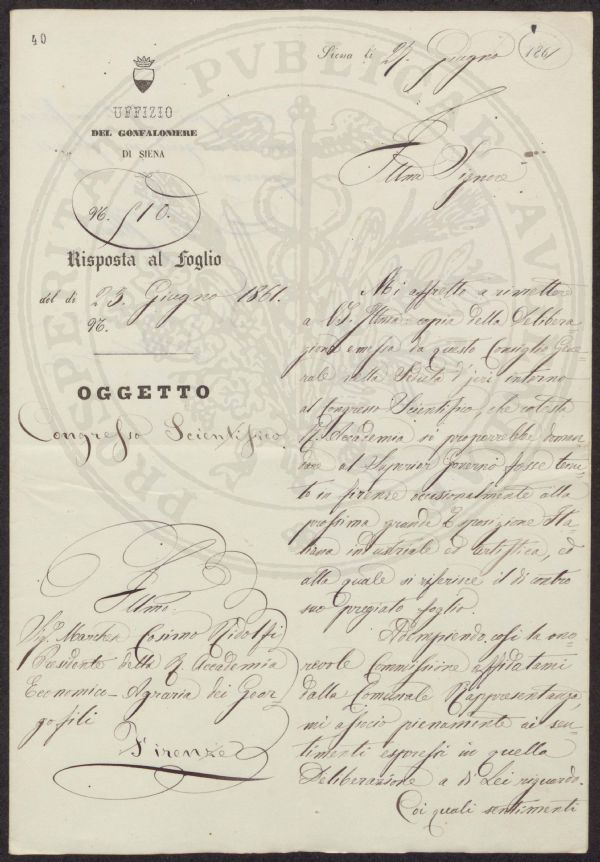 40
UFFIZIO
DEL GONFALONIERE
DI SIENA
N. 510.
Risposta al Foglio
del dì 23 Giugno 1861.
N.
OGGETTO
Congresso Scientifico
Illmo.
Sig. Marchese Cosimo Ridolfi
Presidente della R. Accademia
Economico-Agraria dei Geor=
gofili
Firenze
Siena li 27 Giugno 1861
Illmo Signore
Mi affretto a rimettere
a VS. Illma copia della Delibera
zione emessa da questo Consiglio Gene=
rale nella Seduta d'jeri intorno
al Congresso Scientifico, che cotesta
R. Accademia si proporrebbe doman=
dare al Superior Governo fosse tenu=
to in Firenze occasionalmente alla
prossima grande Esposizione Ita=
liana industriale ed artistica, ed
alla quale si riferisce il di contro
suo pregiato foglio.
Adempiendo così la ono=
revole Commissione affidatami
dalla Comunale Rappresentanza,
mi associo pienamente ai sen=
timenti espressi in quella
Deliberazione a di Lei riguardo.
Coi quali sentimenti
PROSPERITATI PVBLICAE AV